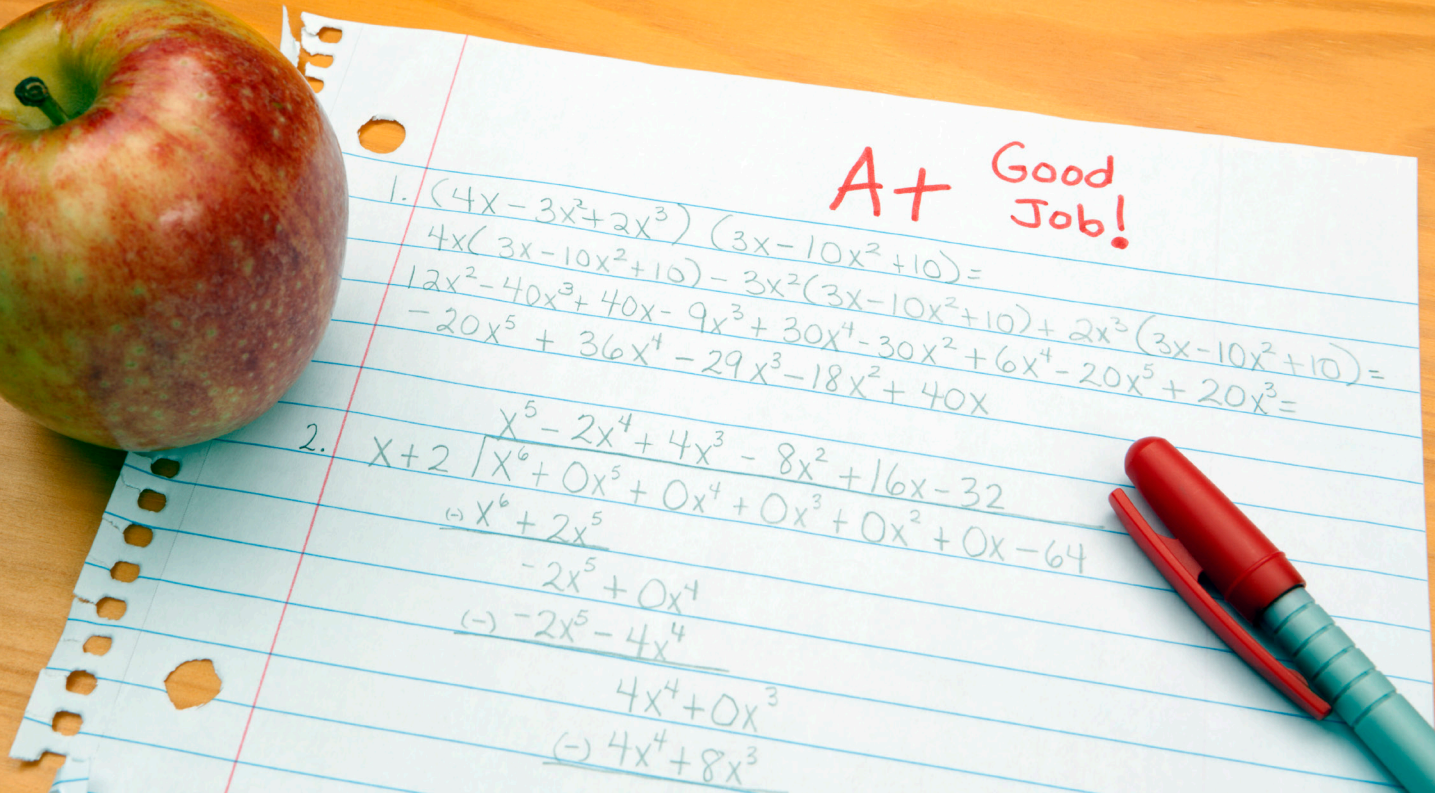 A+ Good
Job!
1. (4x - 3x² + 2x³) (3x - 10x² + 10) =
4x(3x - 10x² + 10) - 3x²(3x - 10x² + 10) + 2x³(3x - 10x² + 10) =
12x² - 40x³ + 40x - 9x³ + 30x⁴ - 30x² + 6x⁴ - 20x⁵ + 20x³ =
-20x⁵ + 36x⁴ - 29x³ - 18x² + 40x
x⁵ - 2x⁴ + 4x³ - 8x² + 16x - 32
2. x+2 √x⁶ + 0x⁵ + 0x⁴ + 0x³ + 0x² + 0x - 64
(-) x⁶ + 2x⁵
-2x⁵ + 0x⁴
(-) -2x⁵ - 4x⁴
4x⁴ + 0x³
(-) 4x⁴ + 8x³